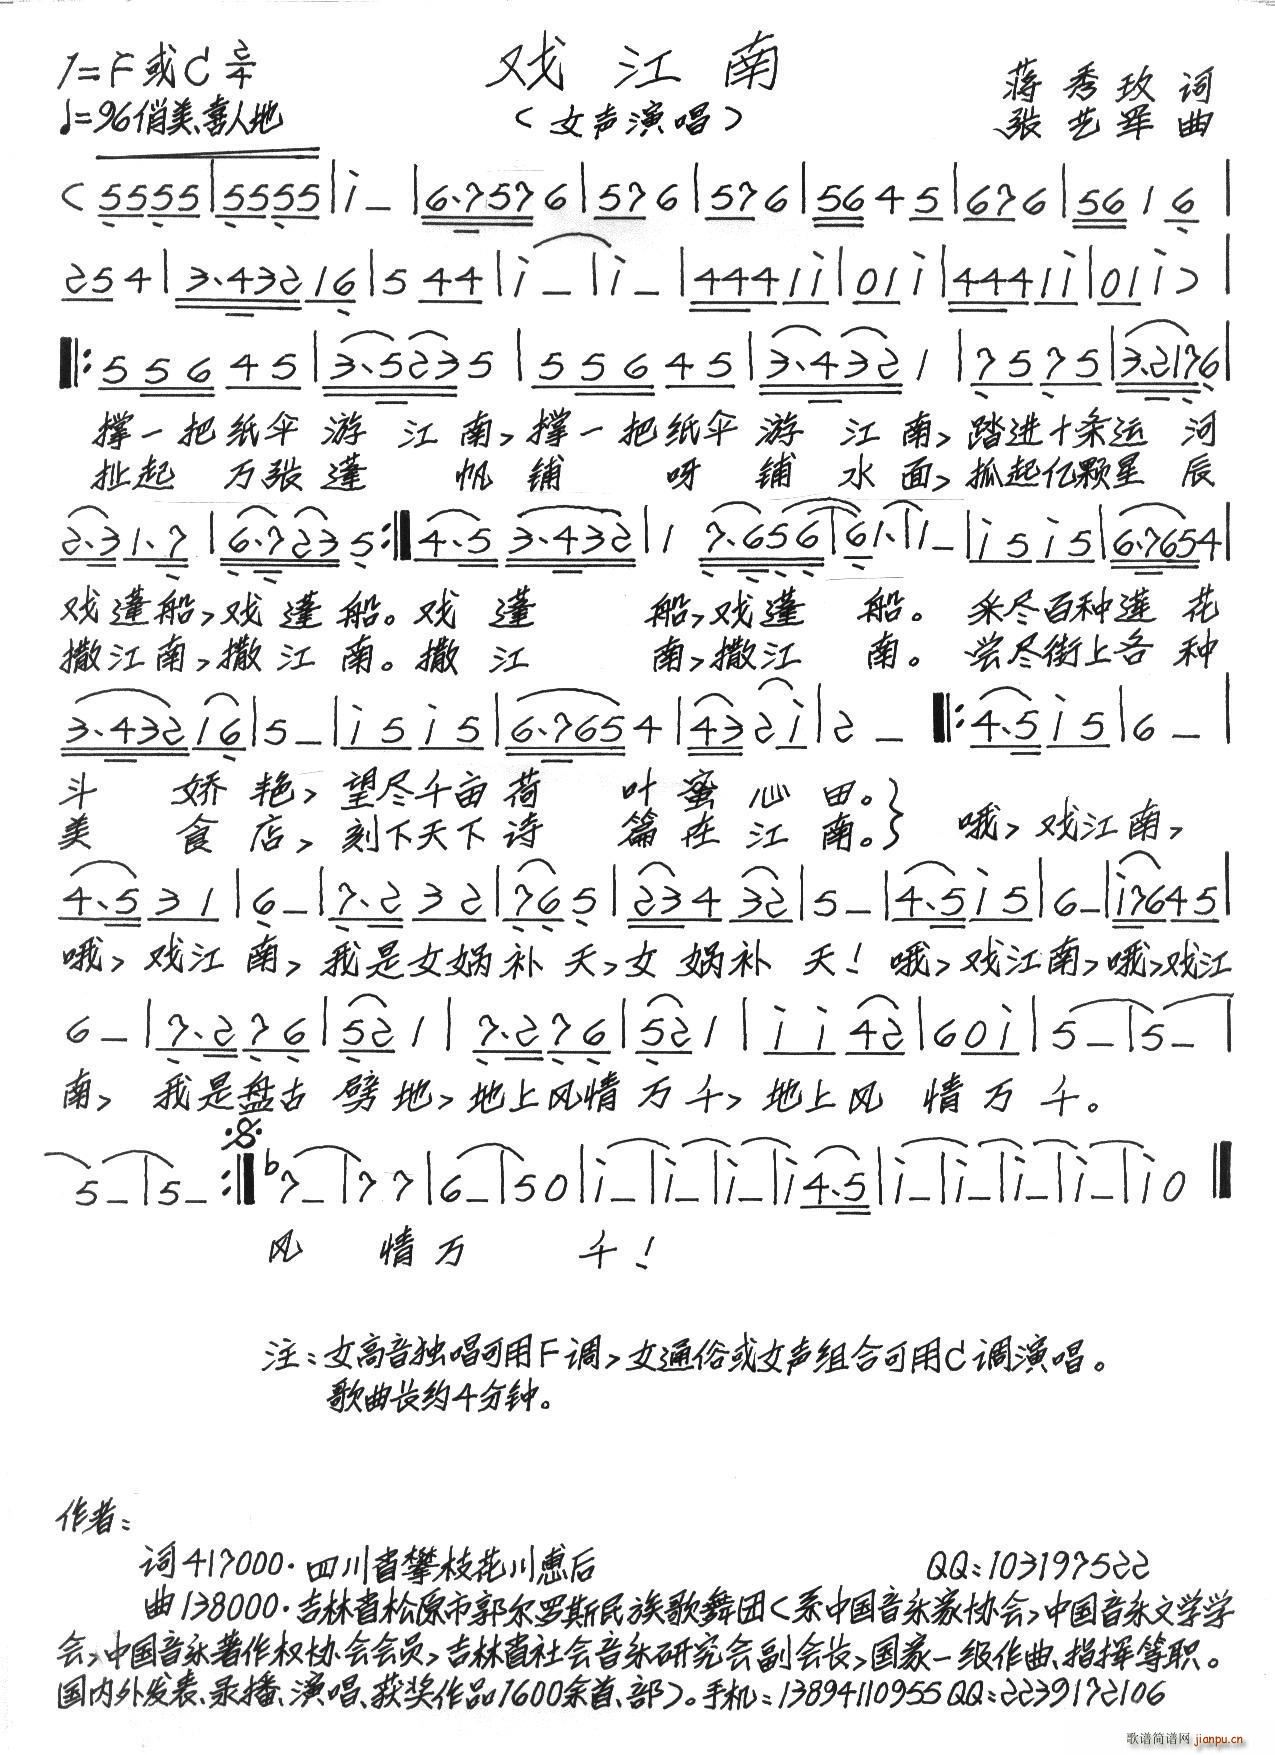 戏江南
(女声演唱)
1=F或C 2/4
♩=96俏美、喜人地
蒋秀玫 词
张艺军 曲
(5555|5555|i–|6·7576|576|576|5645|676|5616|
254|3·43216|544|i–|i–|4441i|01i|4441i|01i)|
‖:55645|3·5235|55645|3·4321|7575|3·2176|
撑一把纸伞游江南,撑一把纸伞游江南,踏进十条运河
扯起万张蓬帆铺呀铺水面,抓起亿颗星辰
2·31·7|6·7235:‖4·53·432|17·656|61·|1–|i5i5|6·7654|
戏蓬船,戏蓬船。戏蓬船,戏蓬船。采尽百种莲花
撒江南,撒江南。撒江南,撒江南。尝尽街上各种
3·43216|5–|i5i5|6·7654|432i|2–‖:4·5i5|6–|
斗娇艳,望尽千亩荷叶蜜心田。}
美食店,刻下天下诗篇在江南。} 哦,戏江南,
4·531|6–|7·232|765|23432|5–|4·5i5|6–|i7645|
哦,戏江南,我是女娲补天,女娲补天!哦,戏江南,哦,戏江
6–|7·276|521|7·276|521|ii42|60i|5–|5–|
南,我是盘古劈地,地上风情万千,地上风情万千。
5–|5–:‖b7–|77|6–|50|i–|i–|i–|i4·5|i–|i–|i–|i–|i0‖
风情万千!
注:女高音独唱可用F调,女通俗或女声组合可用C调演唱。
歌曲长约4分钟。
作者:
词417000·四川省攀枝花川惠后 QQ:103197522
曲138000·吉林省松原市郭尔罗斯民族歌舞团(系中国音乐家协会,中国音乐文学学
会,中国音乐著作权协会会员,吉林省社会音乐研究会副会长,国家一级作曲、指挥等职。
国内外发表、录播、演唱、获奖作品1600余首、部)。手机:13894110955QQ:2239172106
歌谱简谱网
jianpu.cn